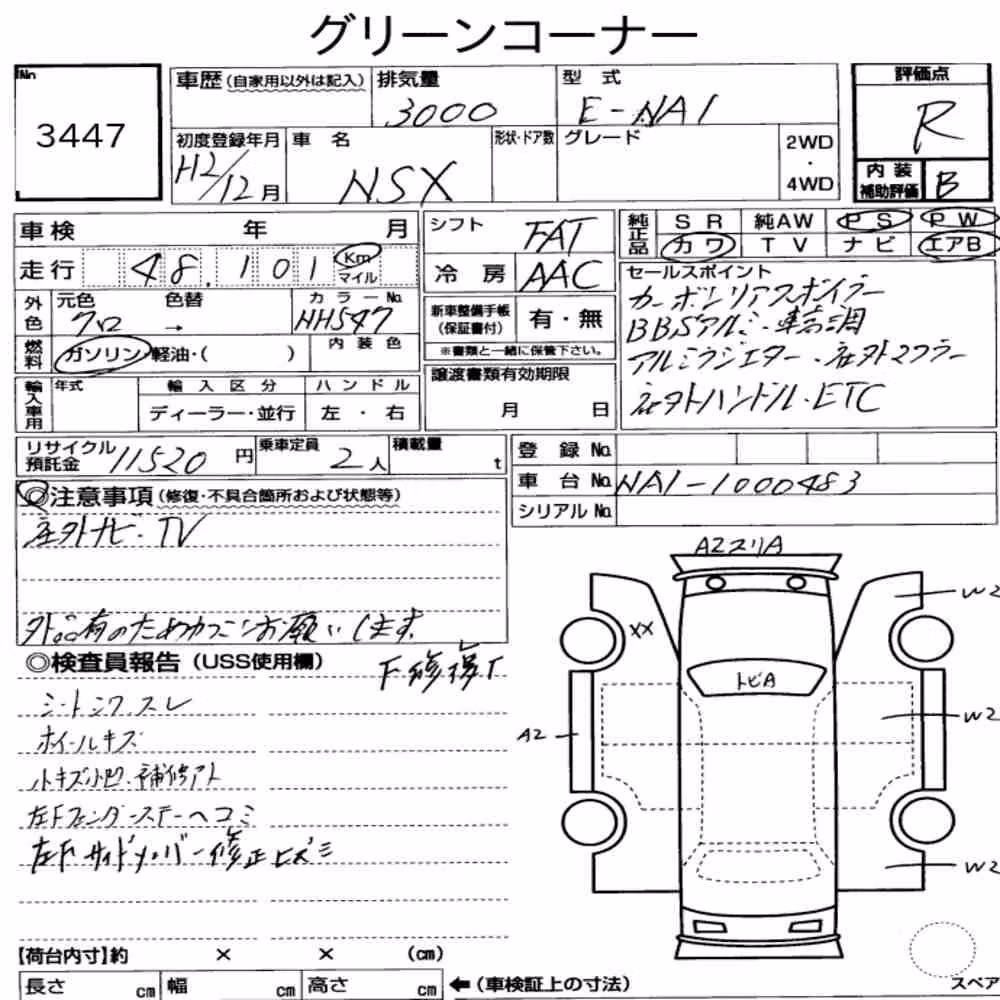 グリーンコーナー
No
3447
車歴(自家用以外は記入)
排気量
3000
型 式
E-NA1
評価点
R
初度登録年月
H2/12月
車 名
NSX
形状・ドア数
グレード
2WD
・
4WD
内 装
補助評価
B
車検 年 月
シフト
FAT
純正品
SR 純AW PS PW
カワ TV ナビ エアB
走行 48,101 Km
マイル
冷 房
AAC
セールスポイント
カーボンリアスポイラー
BBSアルミ・車高調
アルミラジエター・社外マフラー
社外ハンドル・ETC
外色
元色 色替 カラーNo.
クロ → NH547
新車整備手帳
(保証書付)
有・無
※書類と一緒に保管下さい。
燃料
ガソリン・軽油・( )
内 装 色
譲渡書類有効期限
月 日
輸入車用
年式
輸 入 区 分
ハ ン ド ル
ディーラー・並行
左 ・ 右
リサイクル
預託金
11520 円
乗車定員
2人
積載量
t
登 録 No.
車 台 No. NA1-1000483
シリアル No.
◎注意事項(修復・不具合箇所および状態等)
社外ナビ・TV
外品有のため現状にてお願いします
◎検査員報告(USS使用欄)
F修復
シートシワ、スレ
ホイールキズ
小キズ小凹・補修アト
左Fフェンダーステーヘコミ
左Fサイドメンバー修正ヒズミ
A2スリA
W2
XX
トビA
A2
W2
W2
【荷台内寸】約 × × (cm)
長さ cm 幅 cm 高さ cm
←(車検証上の寸法)
スペア